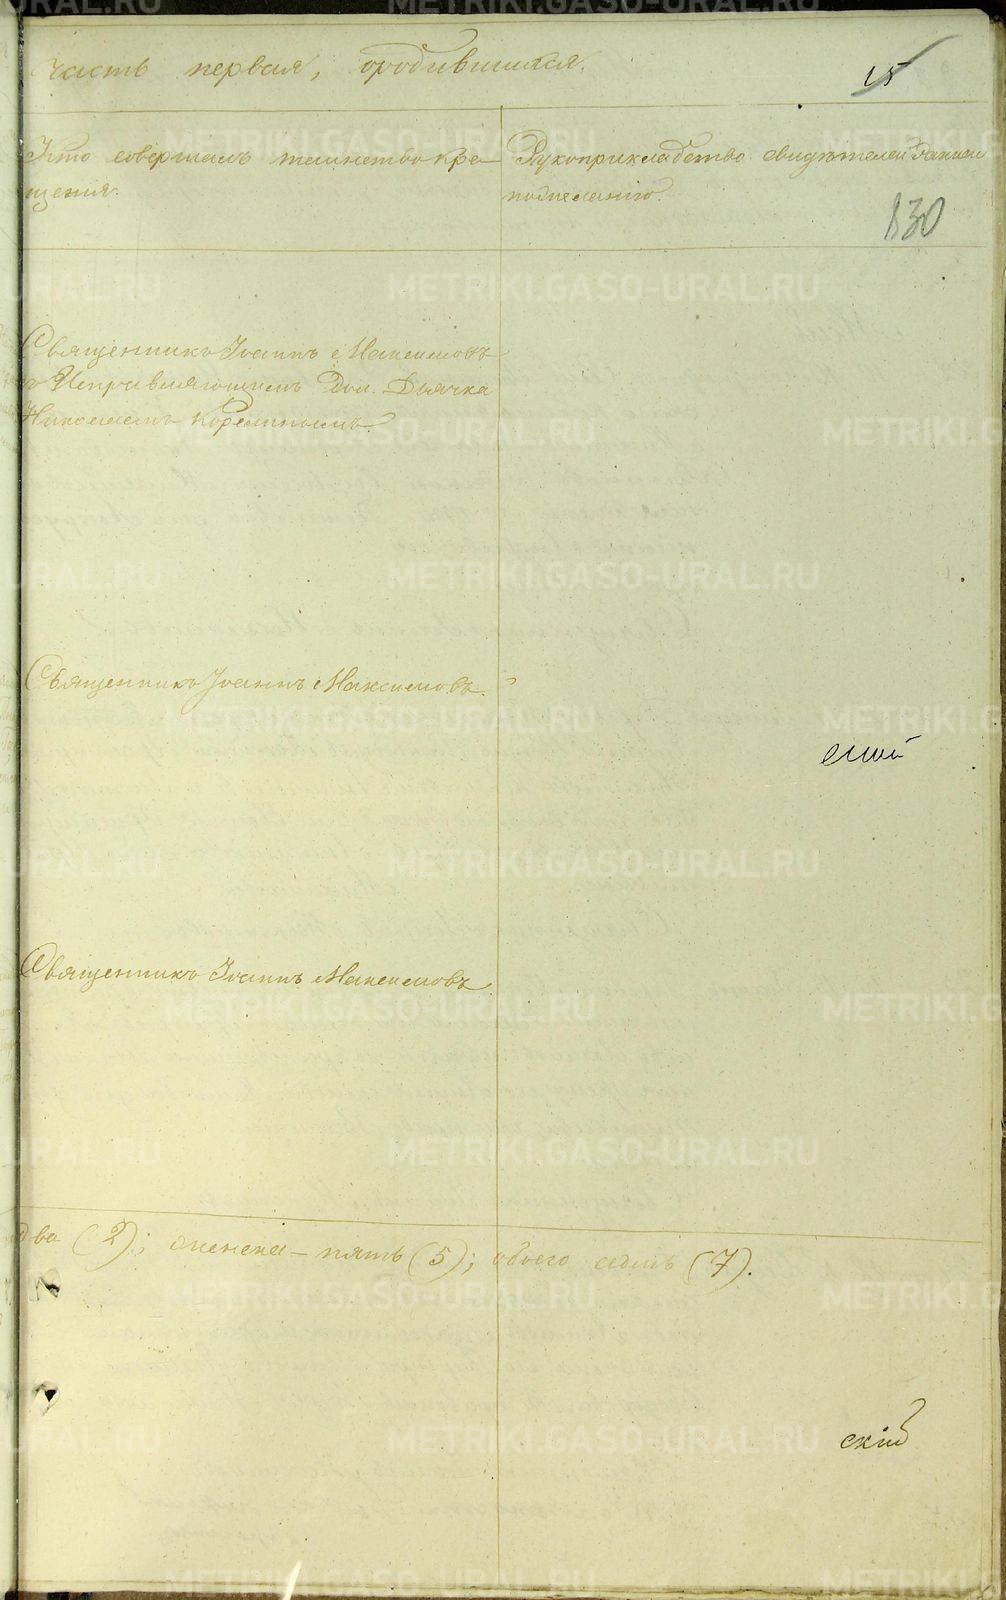 часть первая, о родившихся.
15
Кто совершалъ таинство кре-
щения.
Рукоприкладство свидѣтелей записи
по желанию.
830
Священникъ Іоаннъ Максимовъ
съ Исправляющимъ Дол. Дьячка
Николаемъ
Священникъ Іоаннъ Максимовъ.
Священникъ Іоаннъ Максимовъ
два (2); женска – пять (5); обоего седмь (7).
скій
METRIKI.GASO-URAL.RU